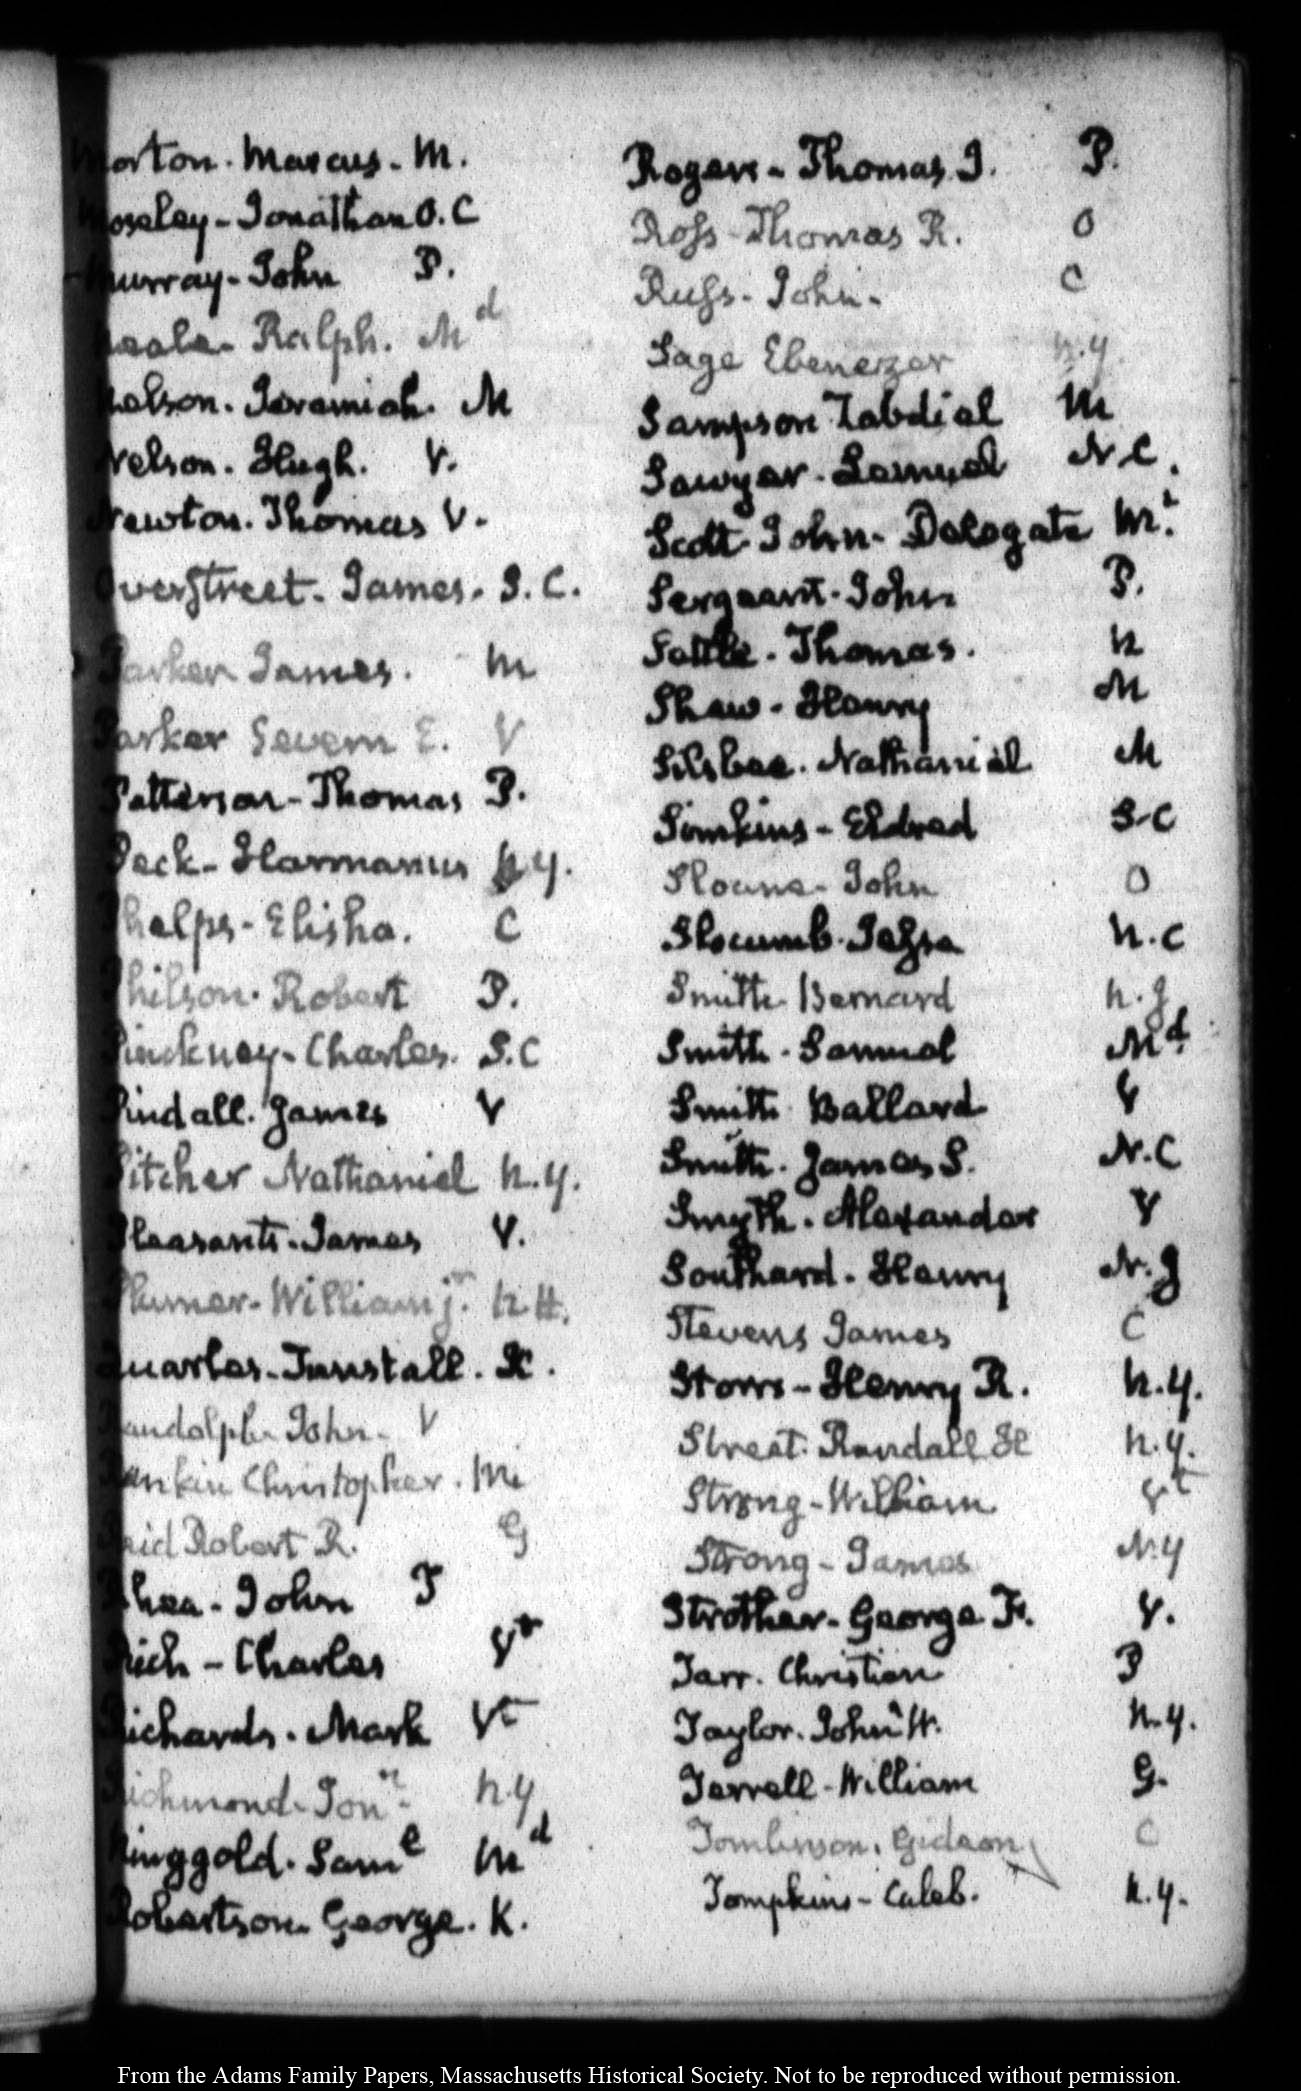 Morton. Marcus. M.
Moseley - Jonathan O. C
Murray - John P.
Neale - Ralph. Md
Nelson. Jeremiah. M
Nelson. Hugh. V.
Newton. Thomas V.
Overstreet. James. S. C.
Parker James. M
Parker Severn E. V
Patterson - Thomas P.
Peck - Harmanus N.Y.
Phelps - Elisha. C
Philson. Robert P.
Pinckney - Charles. S.C
Pindall. James V
Pitcher Nathaniel N.Y.
Pleasants. James V.
Plumer. William jr. N.H.
Quarles. Tunstall. K.
Randolph John. V
Rankin Christopher. Mi
Reid Robert R. G
Rhea - John T
Rich - Charles Vt
Richards. Mark Vt
Richmond. Jonn. N.Y
Ringgold. Saml Md
Robertson. George. K.
Rogers - Thomas J. P.
Ross - Thomas R. O
Russ - John. C
Sage Ebenezer N.Y.
Sampson Zabdiel M
Sawyer - Lemuel N.C.
Scott John. Delegate Mi.
Sergeant. John P.
Settle. Thomas. N
Shaw - Henry M
Silsbee. Nathaniel M
Simkins - Eldred S-C
Sloane - John O
Slocumb. Jesse N.C
Smith Bernard N.J
Smith - Samuel Md.
Smith Ballard V
Smith. James S. N.C
Smyth. Alexander V
Southard. Henry N.J
Stevens James C
Storrs - Henry R. N.Y.
Street. Randall H N.Y.
Strong - William Vt
Strong - James N.Y
Strother - George F. V.
Tarr. Christian P
Taylor. John W. N.Y.
Terrell - William G.
Tomlinson. Gideon C
Tompkins - Caleb. N.Y.
From the Adams Family Papers, Massachusetts Historical Society. Not to be reproduced without permission.